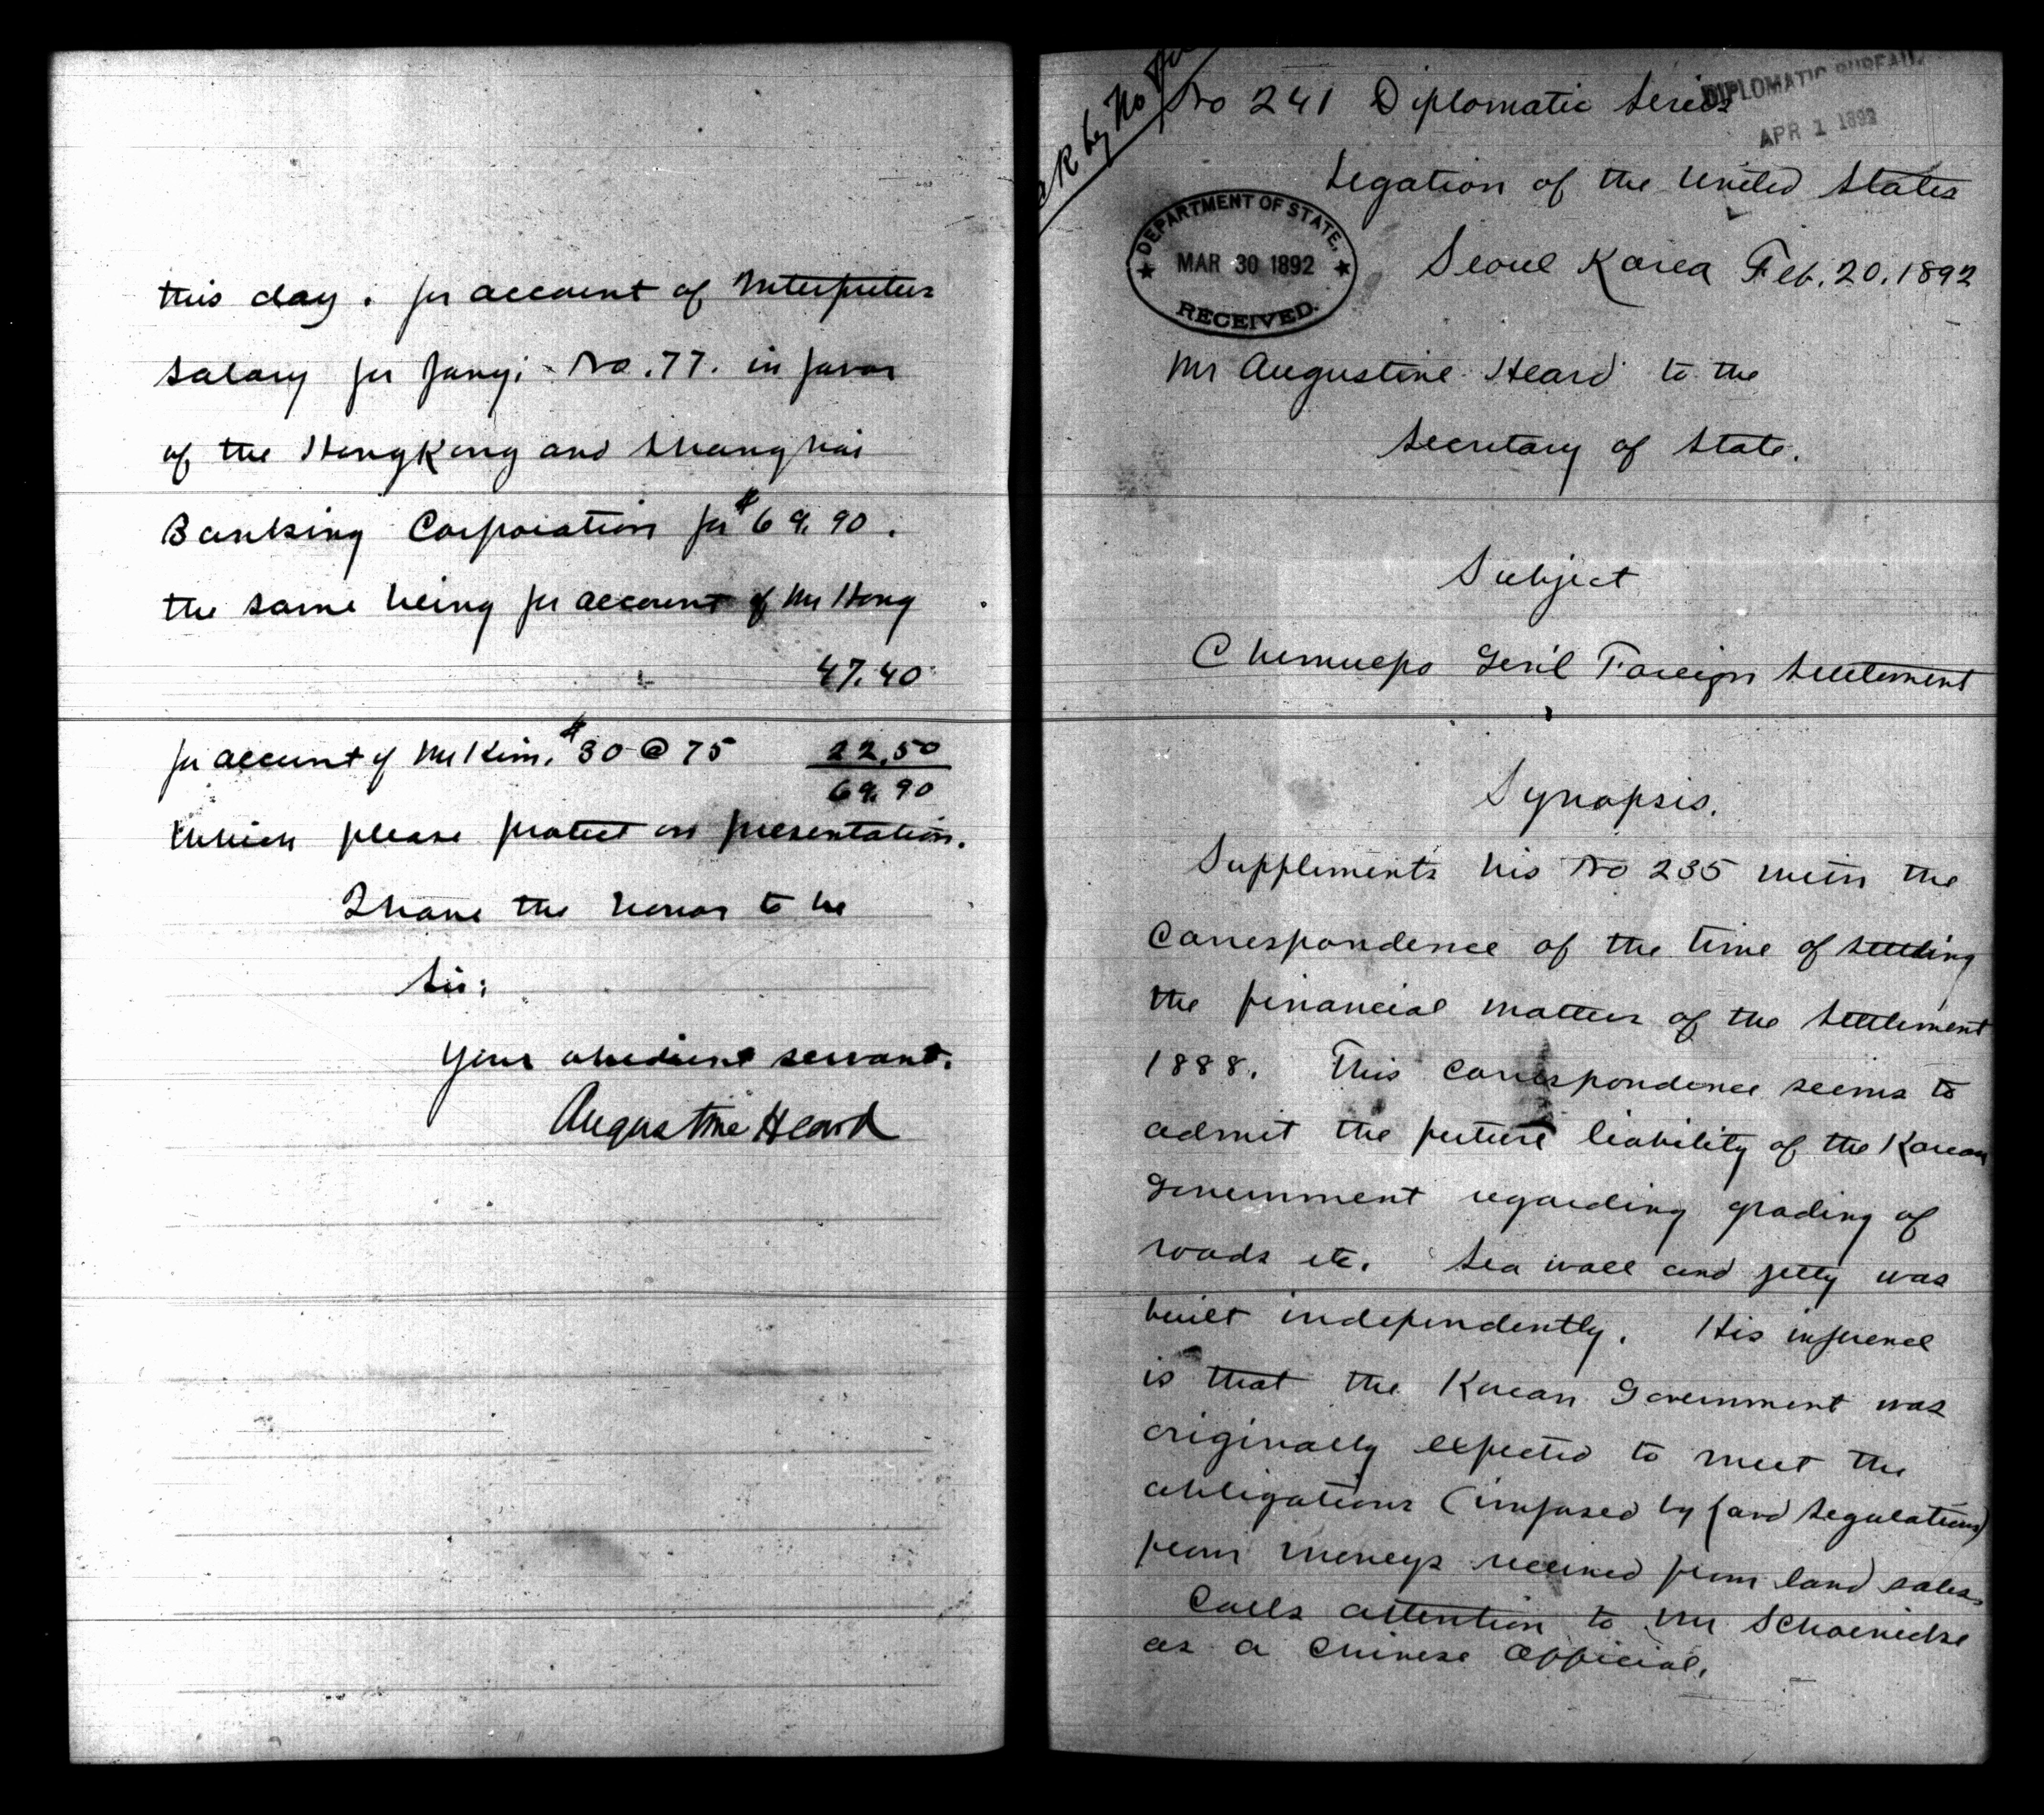 this day. for account of Interpreters
salary for Jany; No. 77. in favor
of the HongKong and Shanghai
Banking Corporation for $69.90.
the same being for account of Mr Hong
47.40
for account of Mr Kim, $30 @ 75 22.50
69.90
Which please protect on presentation.
I have the honor to be
Sir:
Your obedient servant.
Augustine Heard
ack by No
No 241 Diplomatic Series
DIPLOMATIC BUREAU.
APR 1 1892
Legation of the United States
DEPARTMENT OF STATE,
MAR 30 1892
RECEIVED.
Seoul Korea Feb. 20. 1892
Mr Augustine Heard to the
Secretary of State.
Subject
Chemulpo Gen'l Foreign Settlement
Synopsis.
Supplements his No 235 with the
correspondence of the time of settling
the financial matters of the Settlement
1888. This correspondence seems to
admit the future liability of the Korean
Government regarding grading of
roads etc. Sea wall and jetty was
built independently. His inference
is that the Korean Government was
originally expected to meet the
obligations (imposed by land regulations)
from moneys received from land sales.
Calls attention to Mr Schoenicke
as a Chinese Official.